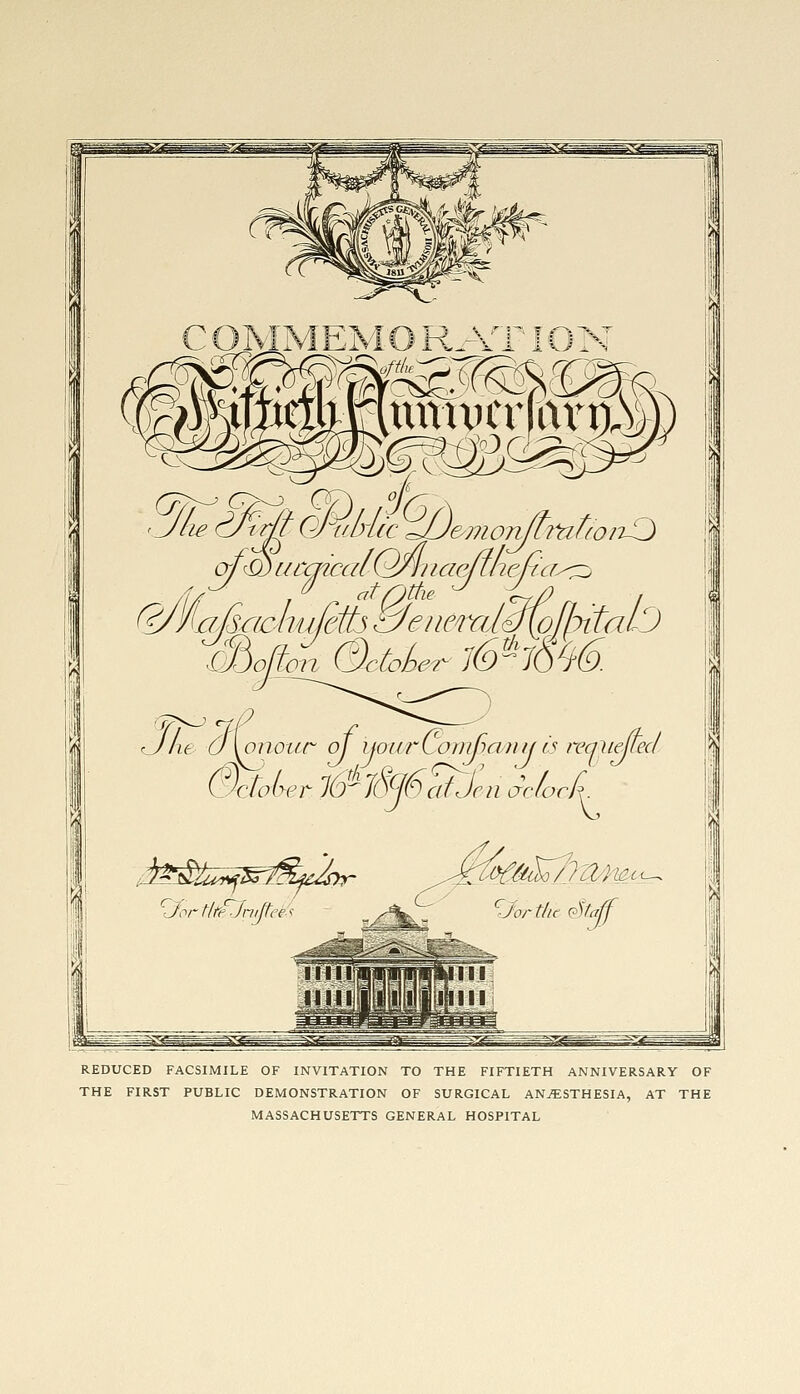 MASSACHUSETTS GENERAL HOSPITAL
1811
COMMEMORATION
of the
Fiftieth Anniverſary
of
The Firſt Public Demonſtration
of Surgical Anaeſtheſia
at the
Maſsachuſetts General Hoſpital
Boſton October 16th 1846.
The Honour of your Company is requeſted
October 16th 1896 at Ten o'clock.
For the Truſtees
For the Staff
REDUCED FACSIMILE OF INVITATION TO THE FIFTIETH ANNIVERSARY OF
THE FIRST PUBLIC DEMONSTRATION OF SURGICAL ANÆSTHESIA, AT THE
MASSACHUSETTS GENERAL HOSPITAL